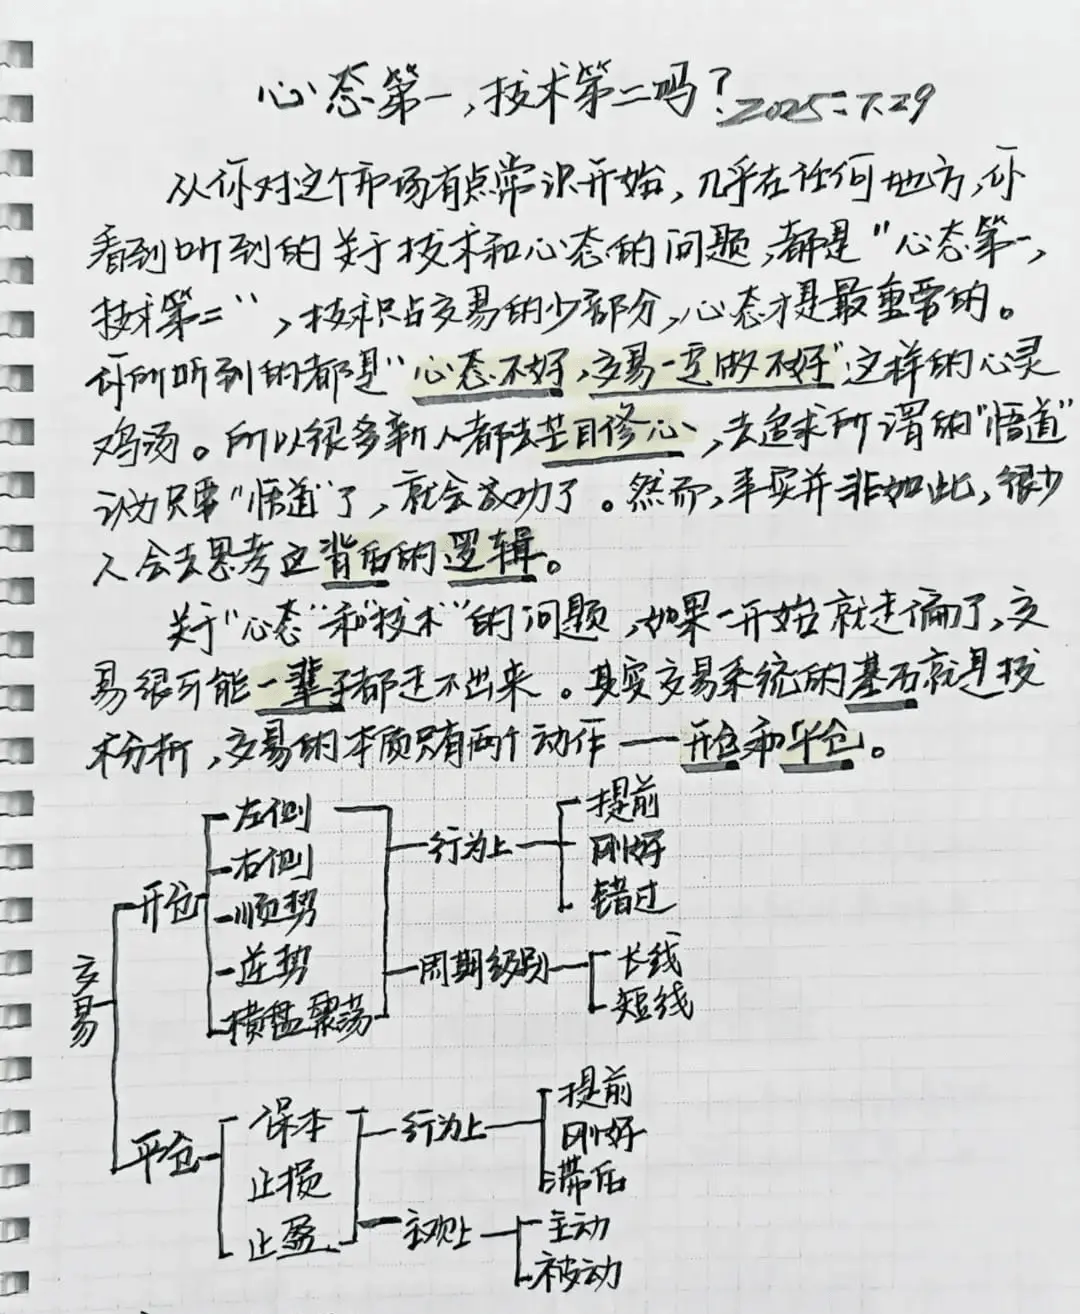 心态第一,技术第二吗? 2025.7.29
从你对这个市场有点常识开始,几乎在任何地方,你
看到听到的关于技术和心态的问题,都是"心态第一,
技术第二",技术只占交易的少部分,心态才是最重要的。
你所听到的都是"心态不好,交易一定做不好"这样的心灵
鸡汤。所以很多新人都去盲目修心,去追求所谓的"悟道"
认为只要"悟道"了,就会成功了。然而,事实并非如此,很少
人会去思考这背后的逻辑。
关于"心态"和"技术"的问题,如果一开始就走偏了,交
易很可能一辈子都走不出来。其实交易系统的基石就是技
术分析,交易的本质只有两个动作——开仓和平仓。
交易
开仓
左侧
右侧
顺势
逆势
横盘震荡
行为上
提前
刚好
错过
周期级别
长线
短线
平仓
保本
止损
止盈
行为上
提前
刚好
滞后
主观上
主动
被动